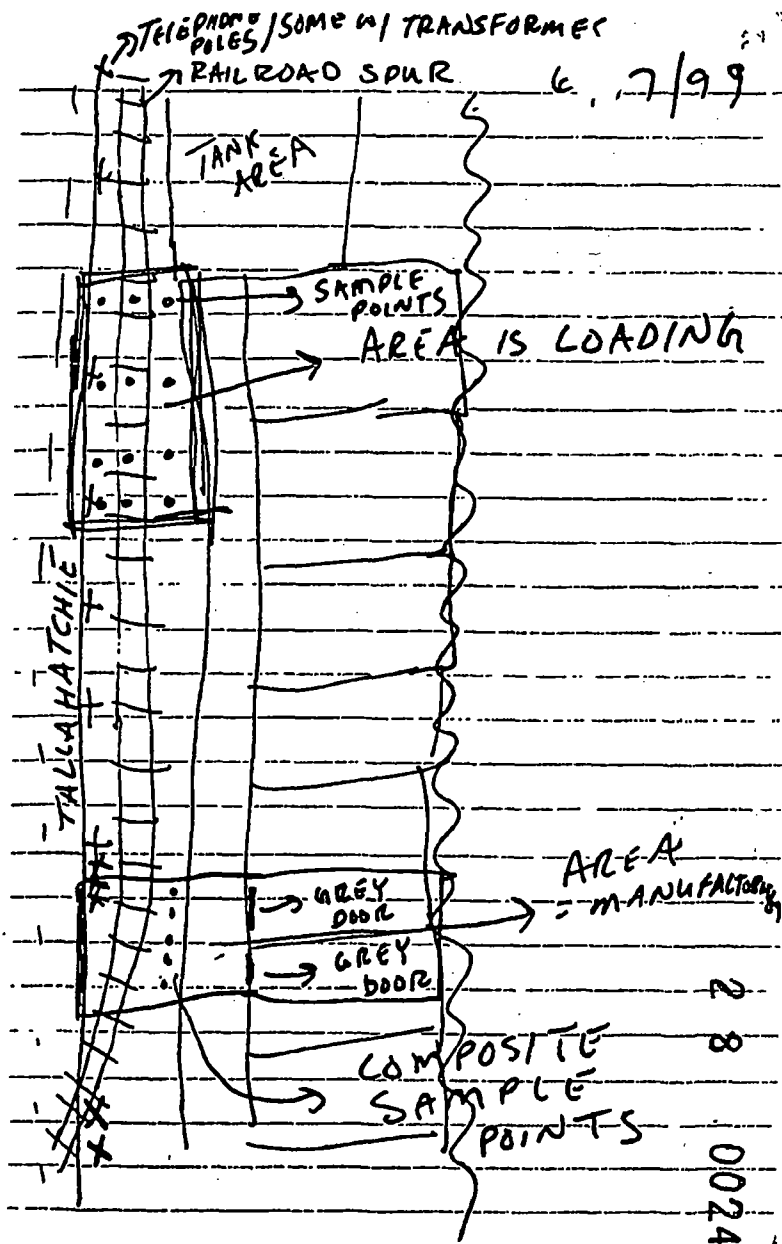 TELEPHONE
POLES / SOME W/ TRANSFORMER
RAILROAD SPUR
7/99
TANK
AREA
SAMPLE
POINTS
AREA IS LOADING
TALLAHATCHIE
GREY
DOOR
GREY
DOOR
AREA
= MANUFACTORING
COMPOSITE
SAMPLE
POINTS
28
0024